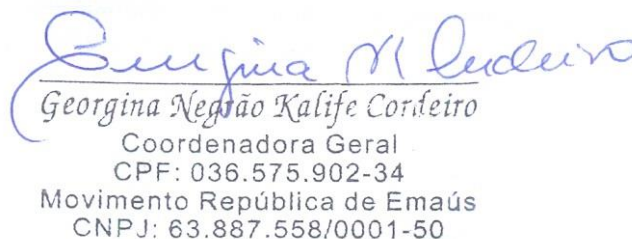 Georgina Negrão Kalife Cordeiro
Coordenadora Geral
CPF: 036.575.902-34
Movimento República de Emaús
CNPJ: 63.887.558/0001-50